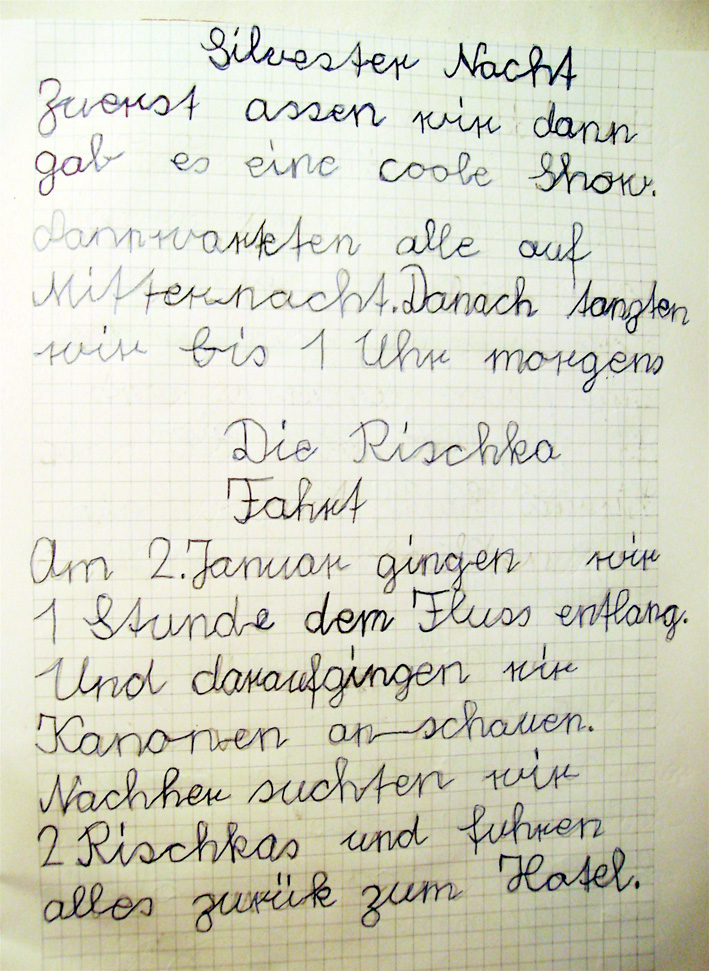 Silvester Nacht
Zuerst assen wir dann
gab es eine coole Show.
dannwarkten alle auf
Mitternacht. Danach tanzten
wir bis 1 Uhr morgens
Die Rischka
Fahrt
Am 2. Januar gingen wir
1 Stunde dem Fluss entlang.
Und daraufgingen wir
Kanonen an-schauen.
Nachher suchten wir
2 Rischkas und fuhren
alles zurük zum Hotel.